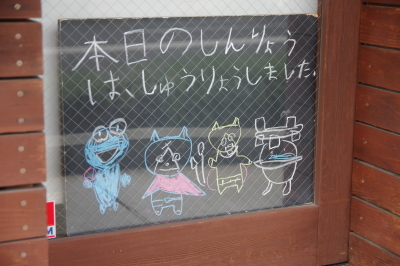 本日のしんりょう
は、しゅうりょうしました。